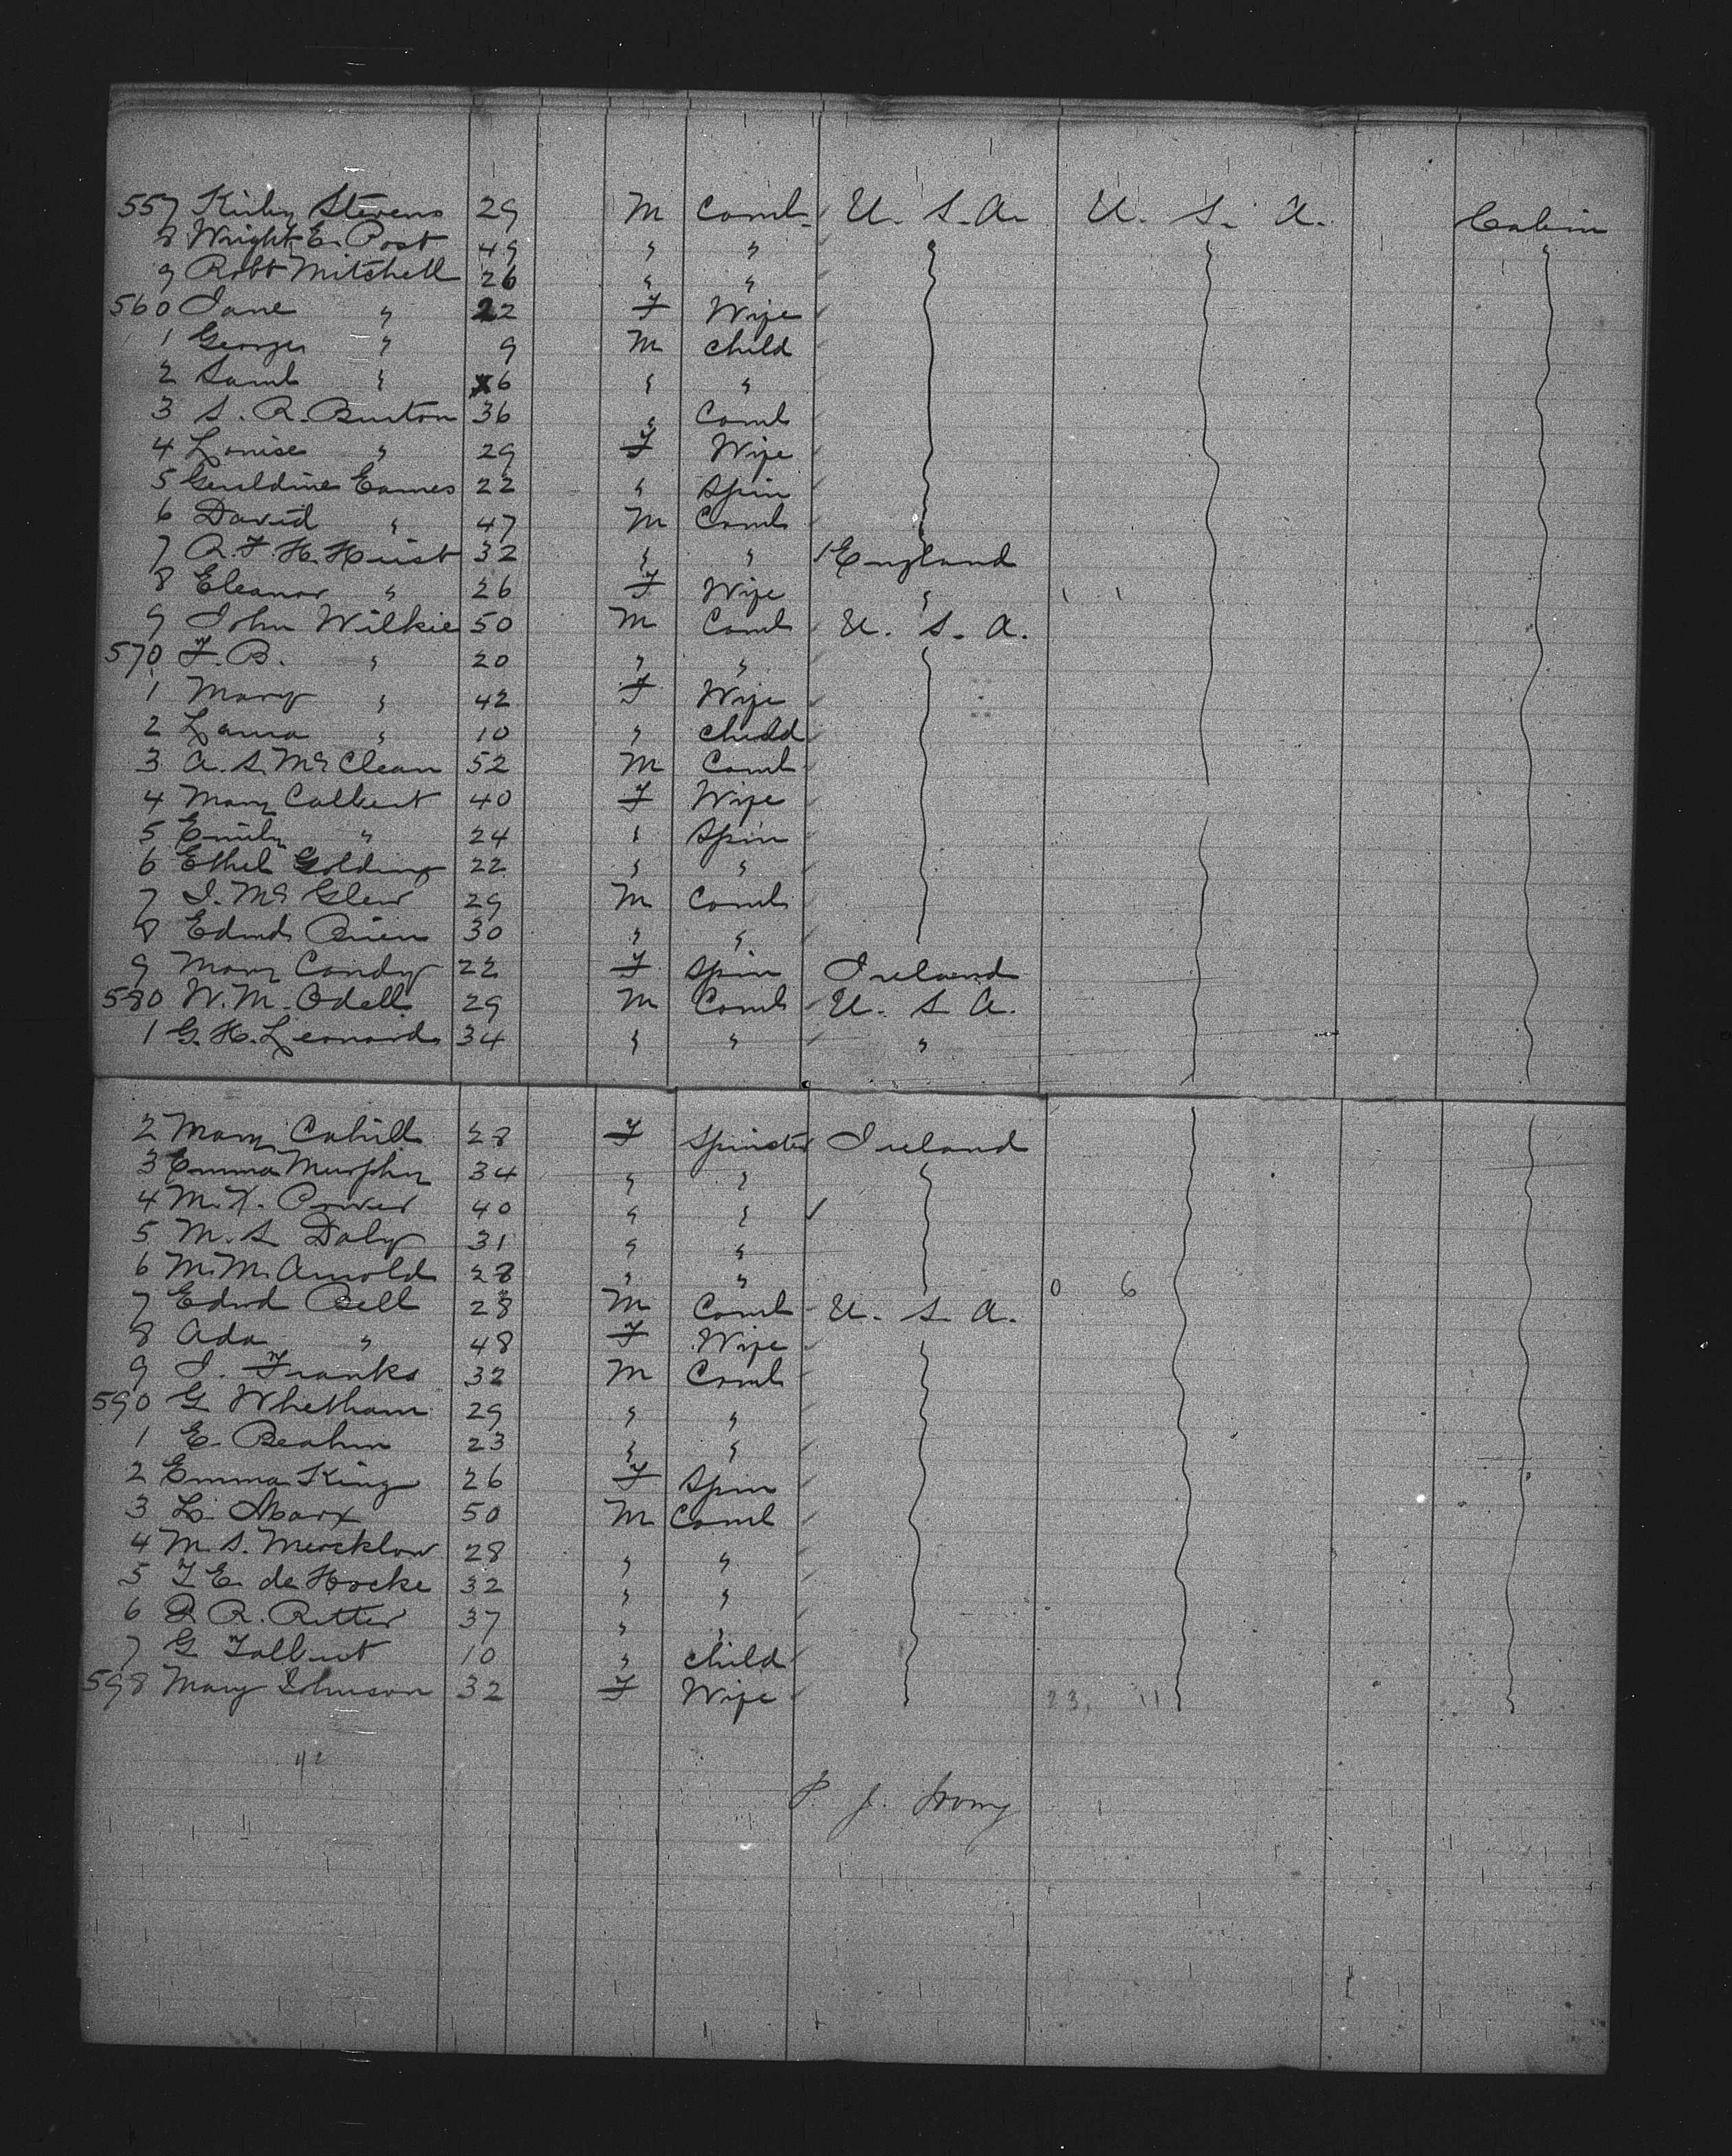 557 Kirby Stevens 29 M Comb U. S. A. U. S. A. Cabin
8 Wright E. Post 49 " "
9 Robt Mitchell 26 " "
560 Jane " 22 F Wife
1 George " 9 M child
2 Saml " 6 " "
3 S. R. Burton 36 " Comb
4 Louise " 29 F Wife
5 Geraldine Eames 22 " Spin
6 David " 47 M Comb
7 A. F. H. Hirst 32 " " England
8 Eleanor " 26 F Wife "
9 John Wilkie 50 M Comb U. S. A.
570 F. B. " 20 " "
1 Mary " 42 F Wife
2 Laura " 10 " child
3 A. S. McClean 52 M Comb
4 Mary Calbert 40 F Wife
5 Emily " 24 " Spin
6 Ethel Golding 22 " "
7 J. Mc Glew 29 M Comb
8 Edwd Brien 30 " "
9 Mary Condy 22 F Spin Ireland
580 W. M. Odell 29 M Comb U. S. A.
1 G. H. Leonards 34 " " "
2 Mary Cahill 28 F Spinster Ireland
3 Emma Murphy 34 " "
4 M. X. Power 40 " "
5 M. S. Daly 31 " "
6 M. M. Arnold 28 " " 0 6
7 Edwd Bell 28 M Comb U. S. A.
8 Ada " 48 F Wife
9 J. Franks 32 M Comb
590 G Whetham 29 " "
1 E. Beahm 23 " "
2 Emma King 26 F Spin
3 L. Marx 50 M Comb
4 M. S. Mercklow 28 " "
5 J E. de Hocke 32 " "
6 R. Ritter 37 " "
7 G Talbot 10 " child
598 Mary Johnson 32 F Wife 23, 11
P. J.